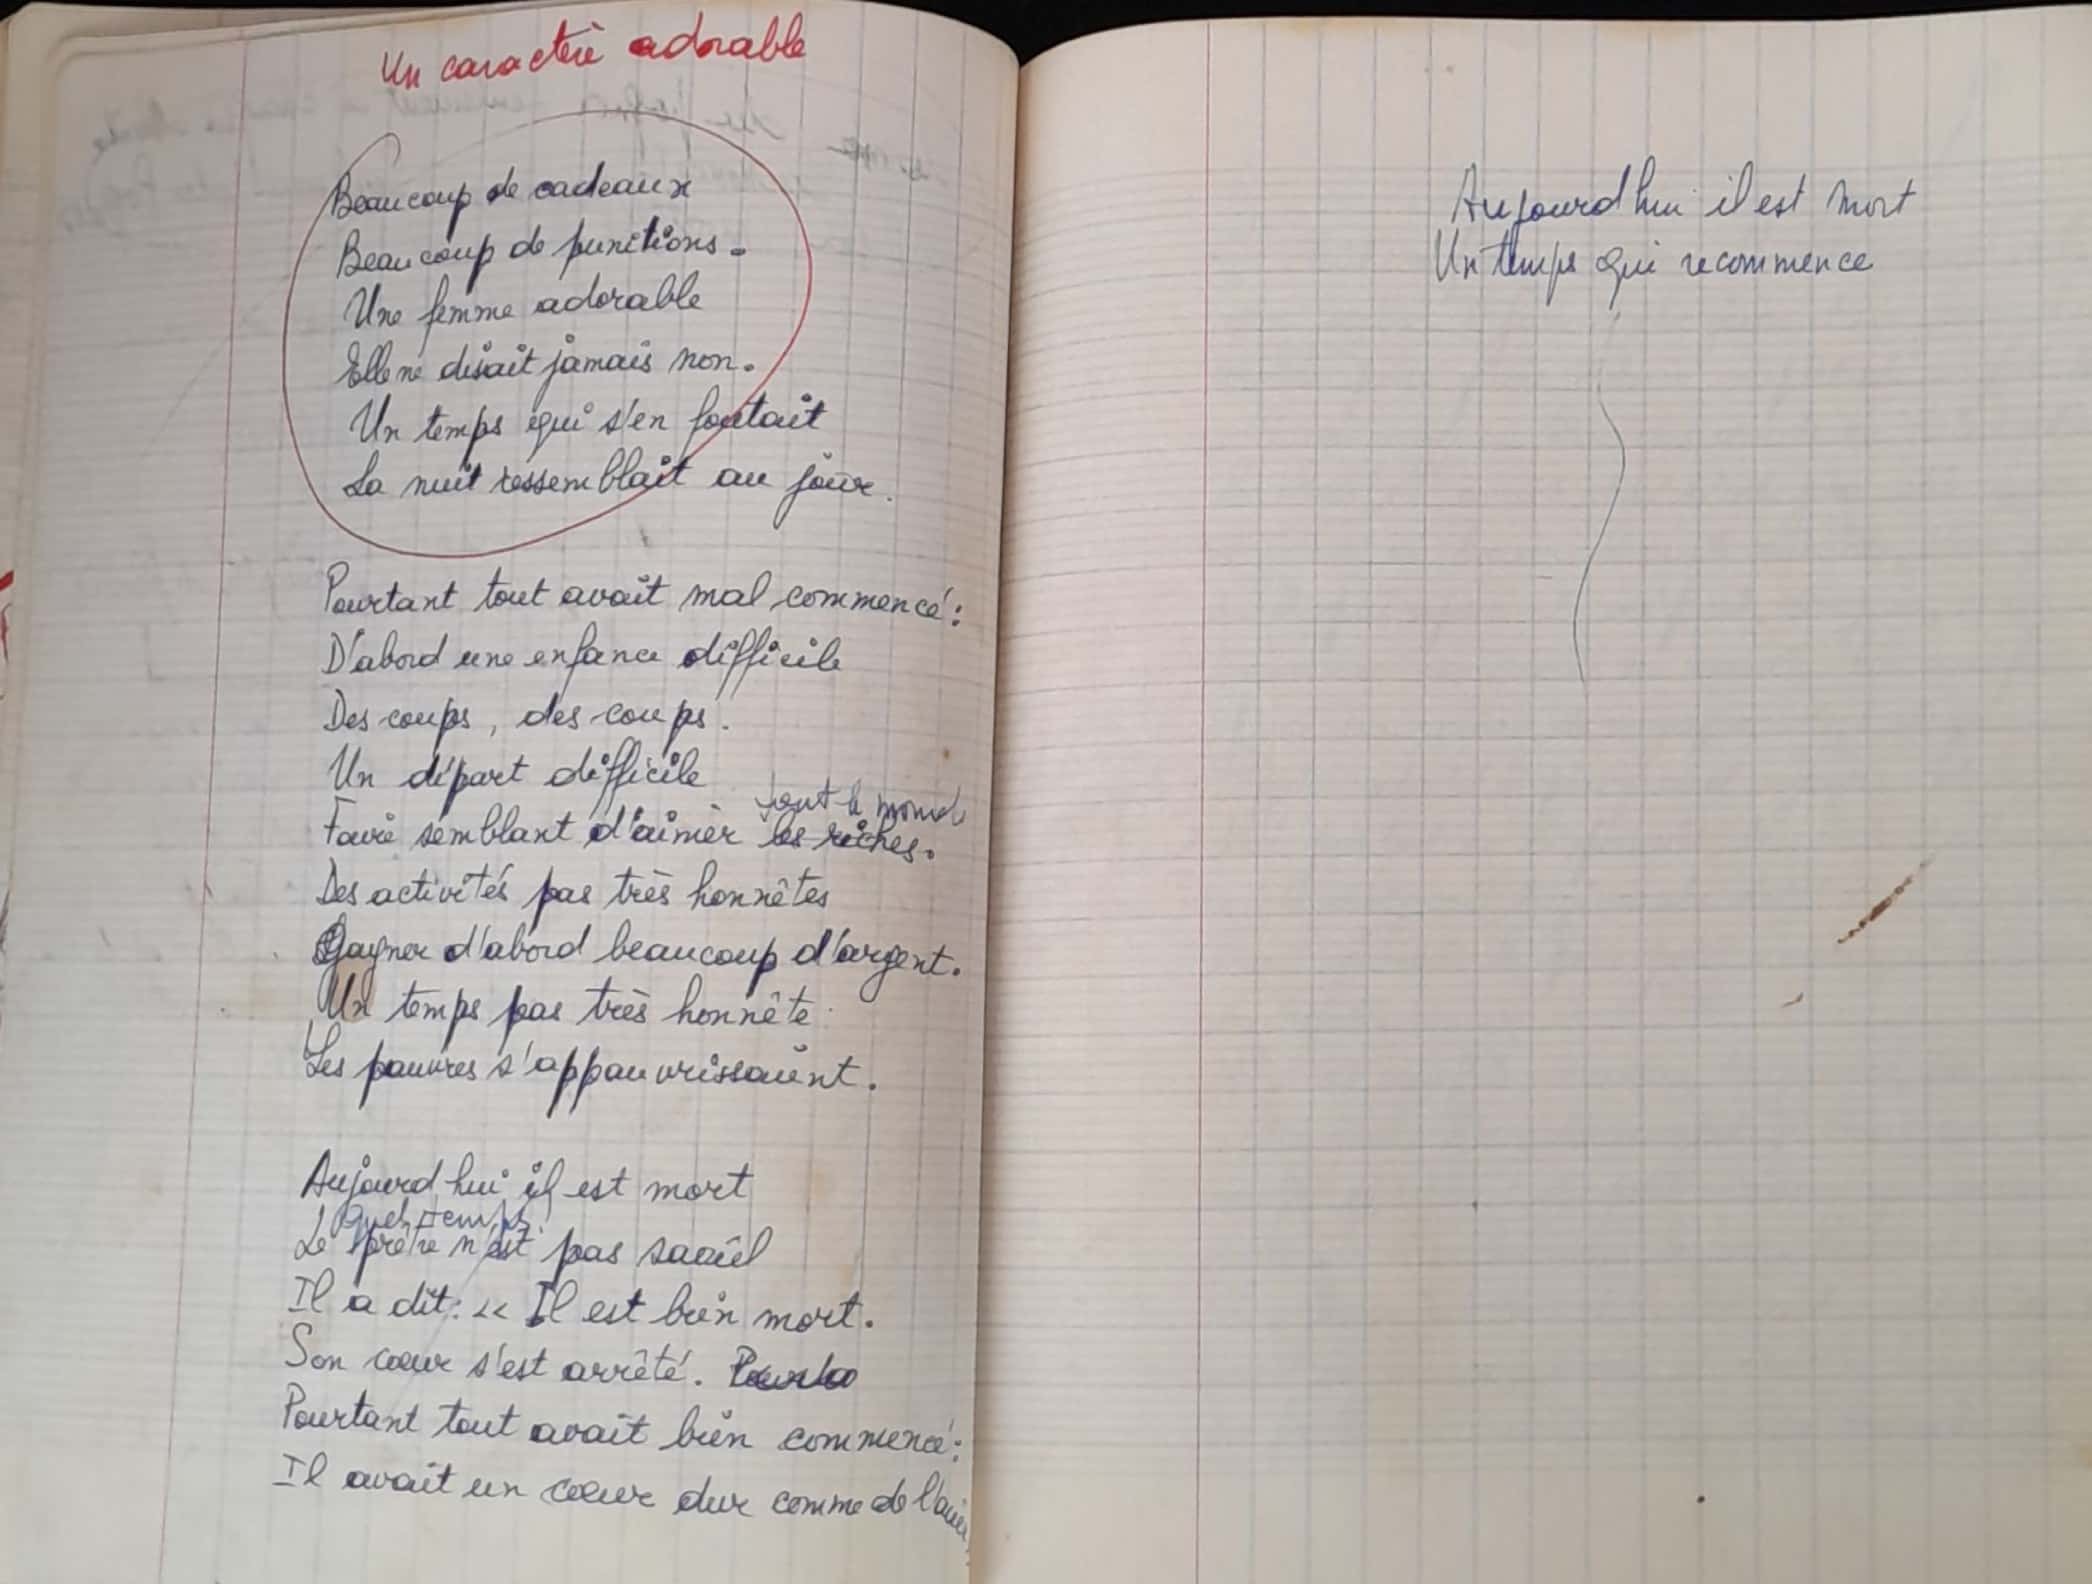 Un caractère adorable
Beaucoup de cadeaux
Beaucoup de punitions.
Une femme adorable
Elle ne disait jamais non.
Un temps qui s'en foutait
La nuit ressemblait au jour.
Pourtant tout avait mal commencé :
D'abord une enfance difficile
Des coups, des coups.
Un départ difficile
tout le monde
Faire semblant d'aimer les riches.
Des activités pas très honnêtes
Gagner d'abord beaucoup d'argent.
Un temps pas très honnête
Les pauvres s'appauvrissaient.
Aujourd'hui il est mort
Quel temps
Le prêtre n'est pas
Il a dit : << Il est bien mort.
Son cœur s'est arrêté.
Pourtant tout avait bien commencé :
Il avait un cœur dur comme de l'acier
Aujourd'hui il est mort
Un temps qui recommence